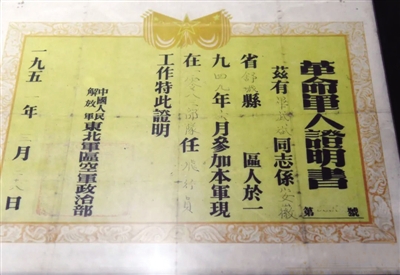 革命軍人證明書
第 號
茲有 同志係安徽
省舒城縣 區人於一
九四九年 月參加本軍現
在 部隊任 員
工作特此證明
中國人民
解放軍 東北軍區空軍政治部
一九五 年 月 日